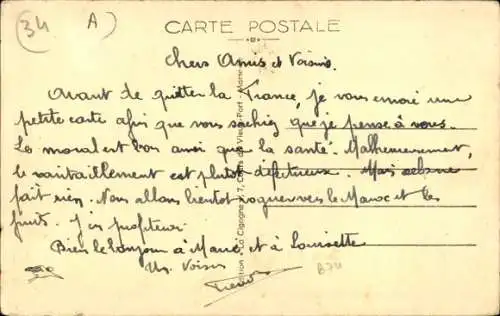 34 A)
CARTE POSTALE
Chers Amis et Voisins.
Avant de quitter la France, je vous envoie une
petite carte afin que vous sachiez que je pense à vous.
Le moral est bon ainsi que la santé. Malheureusement,
le ravitaillement est plutôt défectueux. Mais cela ne
fait rien. Nous allons bientôt voguer vers le Maroc et les
fruits. J'en profiterai
Bien le bonjour à Marie et à Louisette
Un Voisin
Edition "La Cigogne", 7, du Vieux-Port